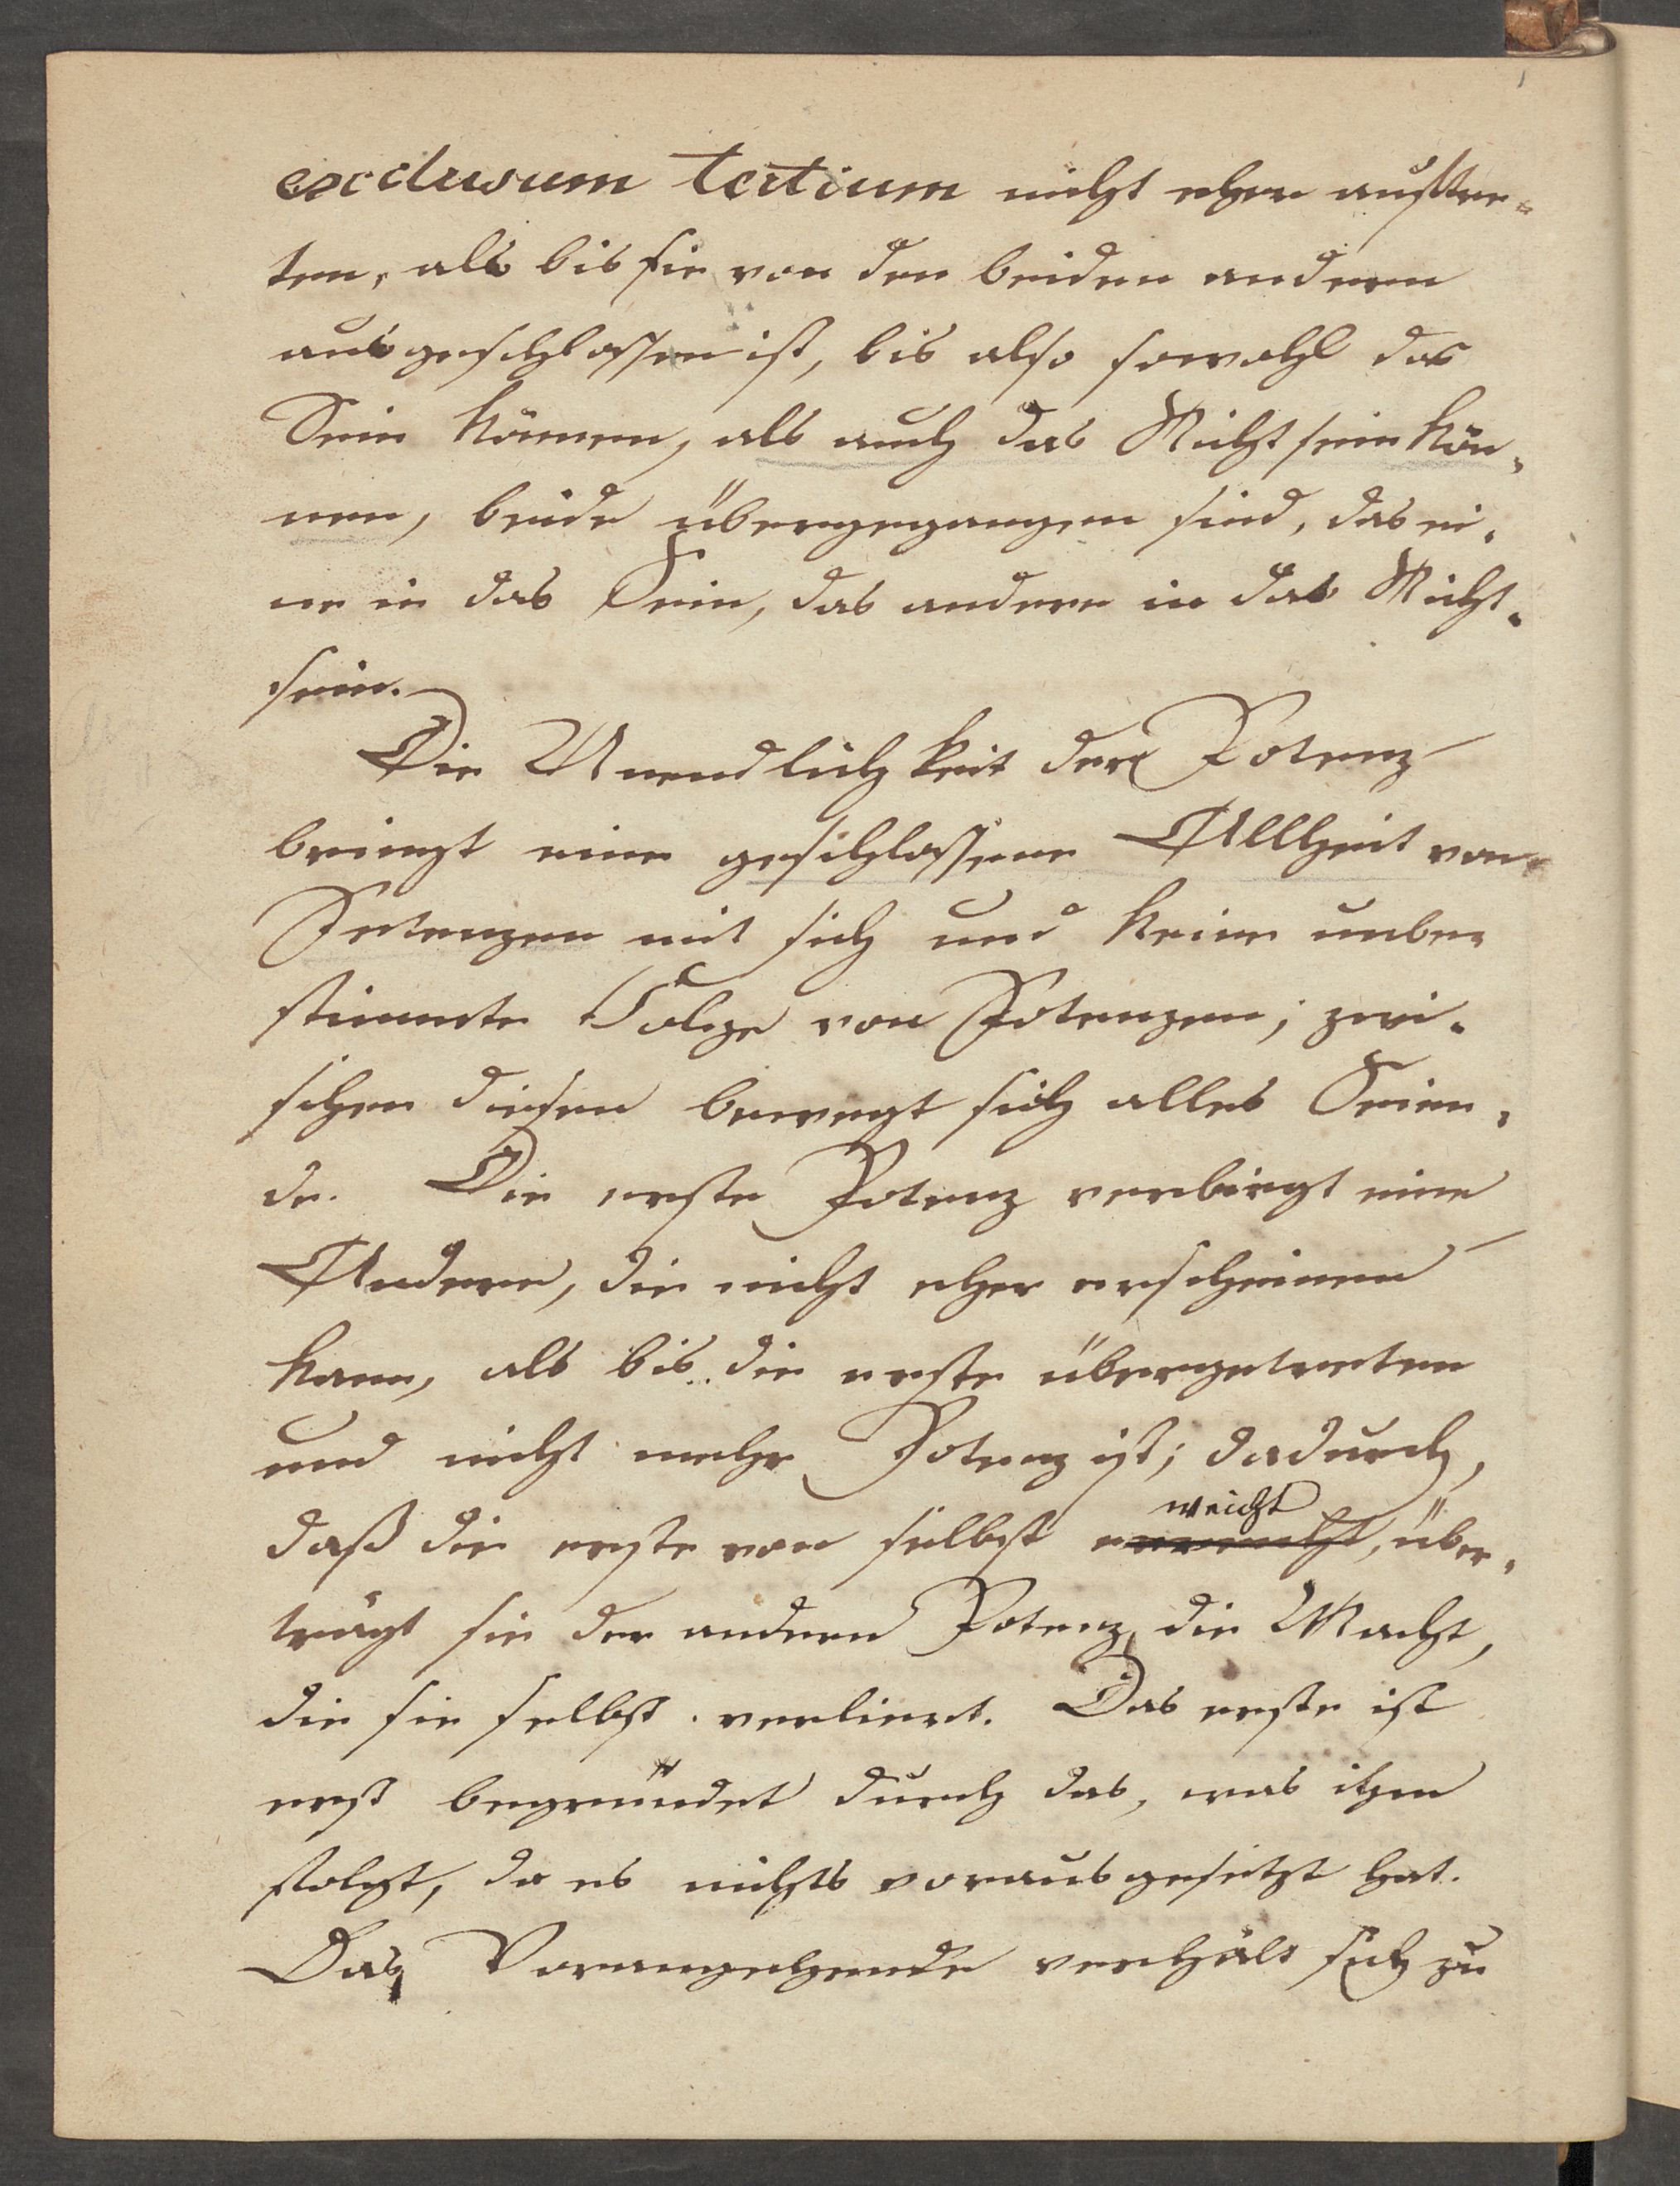 exclusum tertium nicht eher auftre-
ten, als bis sie von den beiden anderen
ausgeschlossen ist, bis also sowohl das
Sein können, als auch das Nicht sein kön-
nen, beide übergegangen sind, das ei-
ne in das Sein, das andere in das Nicht-
sein.
Die Unendlichkeit der Potenz
bringt eine geschlossene Allheit von
Potenzen mit sich und keine unbe-
stimmte Folge von Potenzen; zwi-
schen diesen bewegt sich alles Seien-
de. Die erste Potenz verbirgt eine
Andere, die nicht eher erscheinen
kann, als bis die erste übergetreten
und nicht mehr Potenz ist; dadurch,
weicht
daß die erste von selbst über-
trägt sie der andern Potenz die Macht,
die sie selbst verliert. Das erste ist
erst begründet durch das, was ihm
folgt, da es nichts vorausgesetzt hat.
Das Vorangehende verhält sich zu